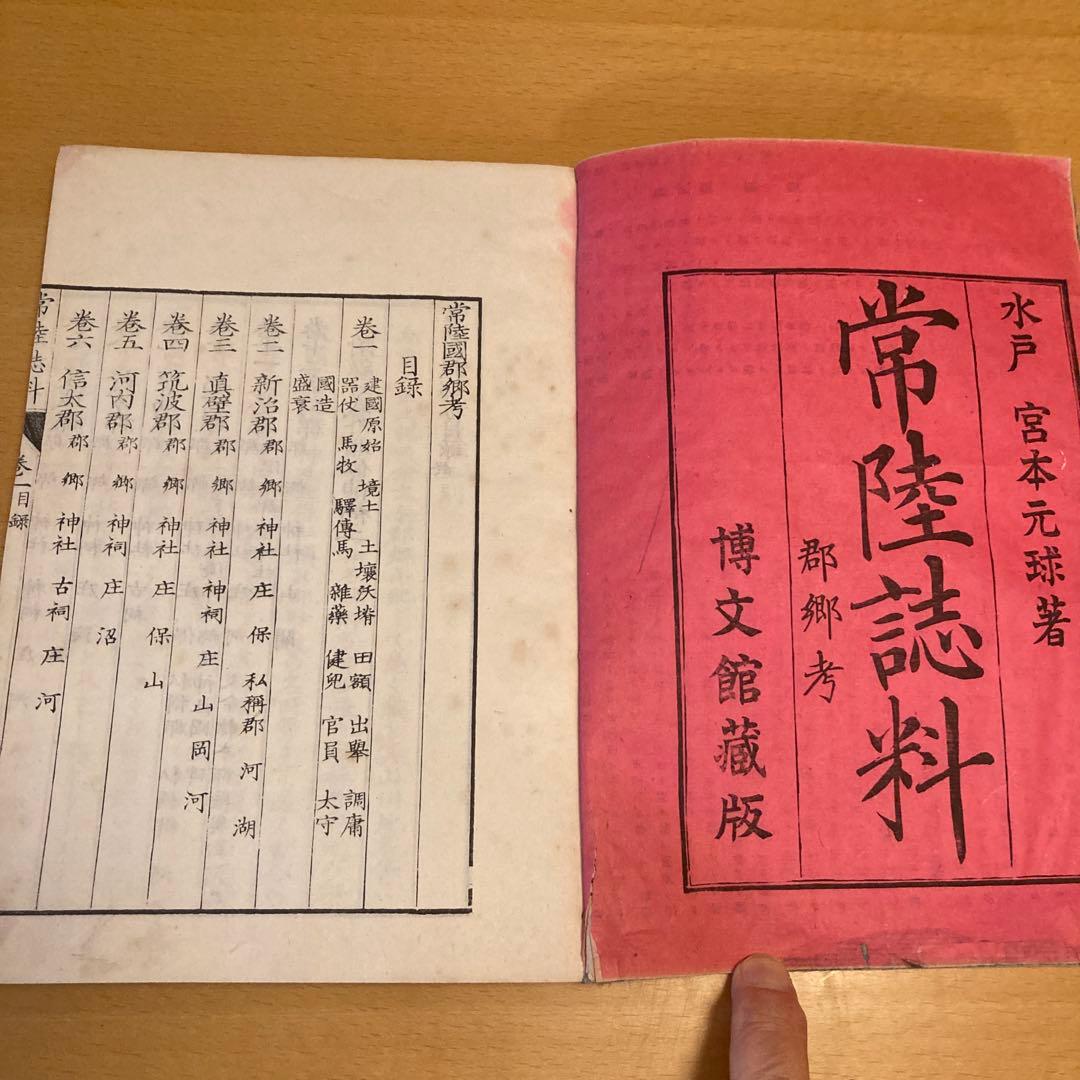 水戸 宮本元球著
常陸誌料
郡郷考
博文館藏版
常陸國郡郷考
目録
卷一 建國原始 境土 土壤沃堉 田額 出擧 調庸
器仗 馬牧 驛傳馬 雜藥 健兒 官員 太守
國造
盛衰
卷二 新治郡 郡 郷 神社 庄 保 私稱郡 河 湖
卷三 真壁郡 郡 郷 神社 神祠 庄 山 岡 河
卷四 筑波郡 郡 郷 神社 庄 保 山
卷五 河内郡 郡 郷 神祠 庄 沼
卷六 信太郡 郡 郷 神社 古祠 庄 河
常陸誌料 卷一目録